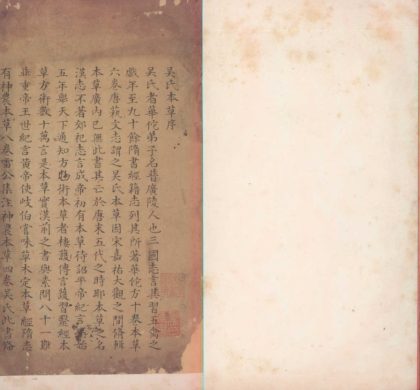 吳氏本草序
吳氏者華佗弟子名普廣陵人也三國志言其習五禽之
戲年至九十餘隋書經籍志列其所著華佗方十卷本草
六卷唐藝文志謂之吳氏本草因宋嘉祐大觀之間
本草廣內已無此書其亡於唐末五代之時耶本草之名
漢志不著郊祀志言成帝初有本草待詔平帝紀言元始
五年舉天下通知方術本草者樓護傳言護誦醫經本
草方術數十萬言是本草實漢前之書與素問八十一難
並重帝王世紀言黃帝使岐伯嘗味草木定本草經隋志
有神農本草八卷雷公集注神農本草四卷吳氏此書